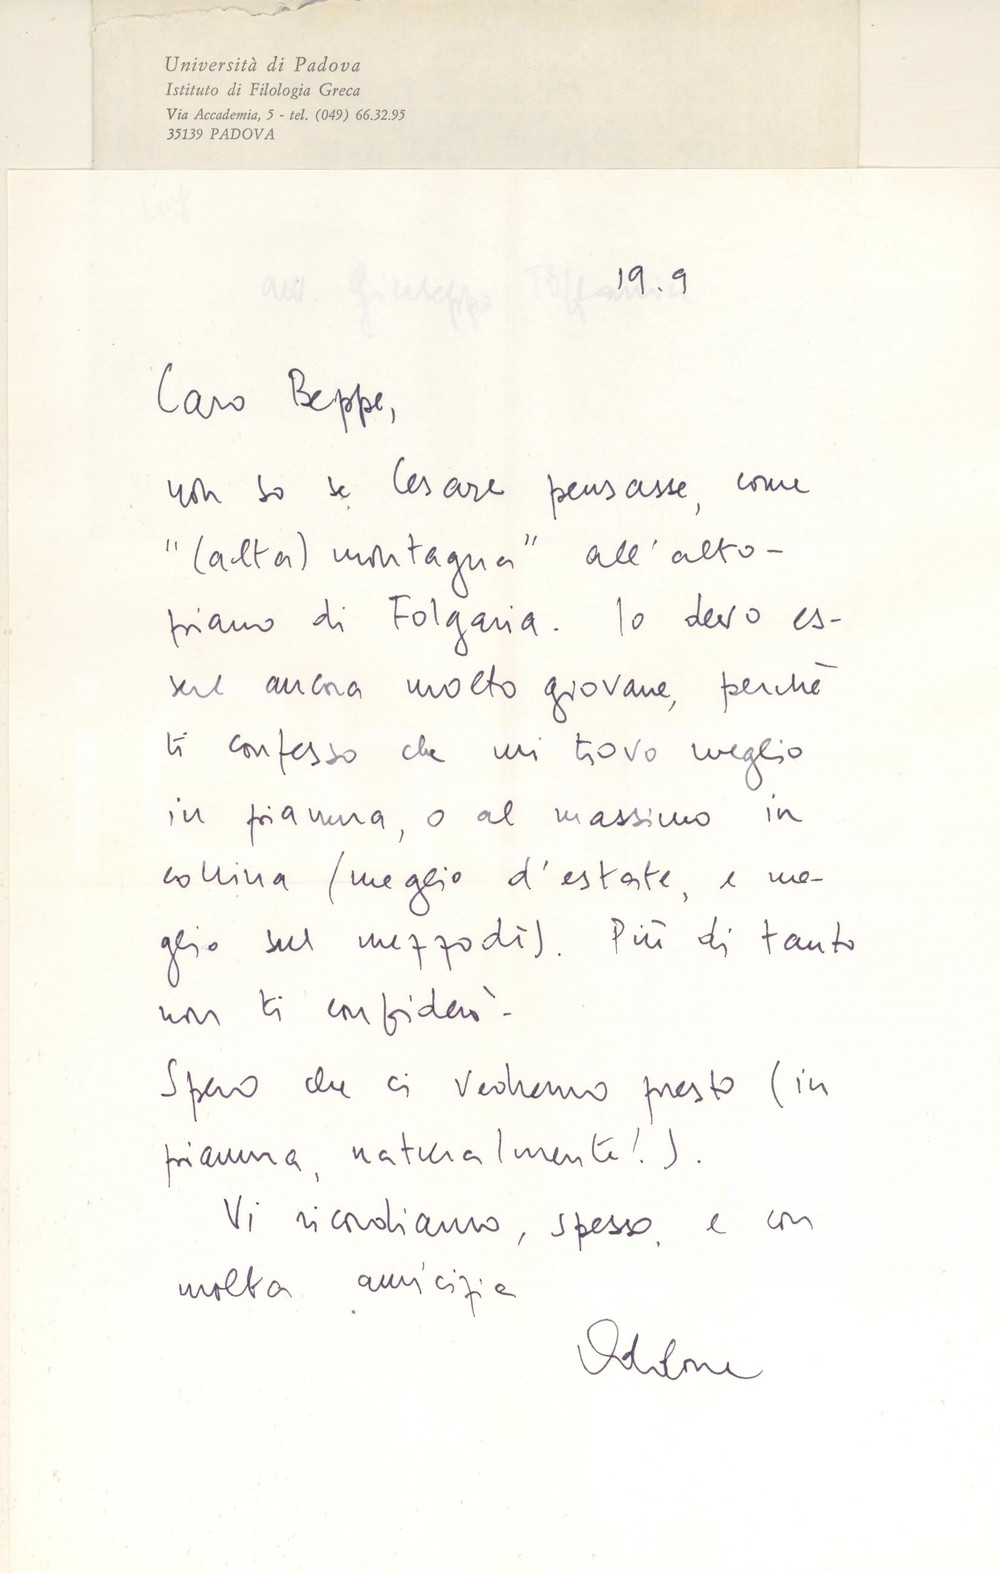 Università di Padova
Istituto di Filologia Greca
Via Accademia, 5 - tel. (049) 66.32.95
35139 PADOVA
19.9
Caro Beppe,
non so se Cesare pensasse, come
"(alta) montagna" all'alto-
piano di Folgaria. Io devo es-
sere ancora molto giovane, perché
ti confesso che mi trovo meglio
in pianura, o al massimo in
collina (meglio d'estate, e me-
glio sul mezzodì). Più di tanto
non ti confiderò.
Spero che ci vedremo presto (in
pianura, naturalmente!).
Vi ricordiamo, spesso, e con
molta amicizia
Oddone